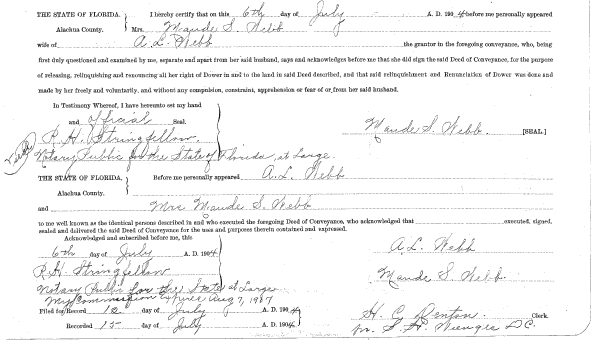 THE STATE OF FLORIDA, I hereby certify that on this 6th day of July A. D. 1904 before me personally appeared
Alachua County. Mrs. Maude S. Webb
wife of A. L. Webb the grantor in the foregoing conveyance, who, being
first duly questioned and examined by me, separate and apart from her said husband, says and acknowledges before me that she did sign the said Deed of Conveyance, for the purpose
of releasing, relinquishing and renouncing all her right of Dower in and to the land in said Deed described, and that said relinquishment and Renunciation of Dower was done and
made by her freely and voluntarily, and without any compulsion, constraint, apprehension or fear of or from her said husband.
In Testimony Whereof, I have hereunto set my hand
and official Seal.
R. H. Stringfellow. Maude S. Webb. [SEAL.]
Notary Public for the State of Florida, at Large.
THE STATE OF FLORIDA, Before me personally appeared A. L. Webb
Alachua County.
and Mrs Maude S. Webb
to me well known as the identical persons described in and who executed the foregoing Deed of Conveyance, who acknowledged that executed, signed,
sealed and delivered the said Deed of Conveyance for the uses and purposes therein contained and expressed.
Acknowledged and subscribed before me, this
6th day of July A. D. 1904 A. L. Webb
R. H. Stringfellow Maude S. Webb.
Notary Public for the State at Large
My Commission Expires Aug 7, 1907
Filed for Record 12 day of July A. D. 1904 H. C. Denton Clerk.
Recorded 15 day of July A. D. 1904 D. C.